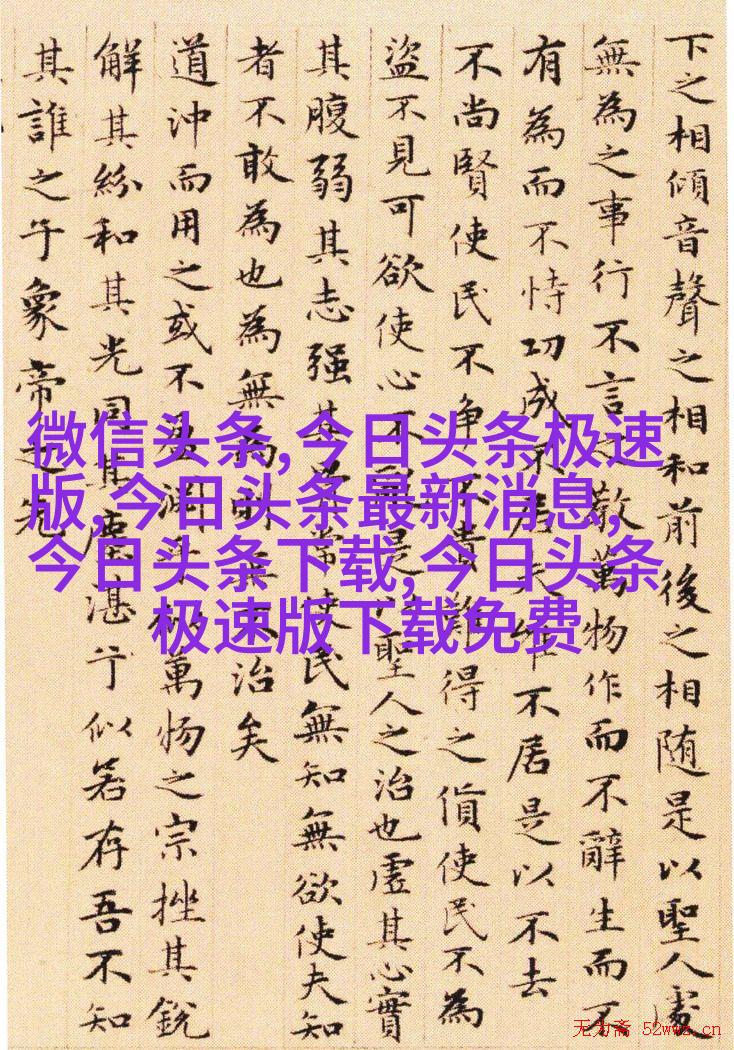 下之相傾音聲之相和前後之相随是以聖人處
無為之事行不言之教萬物作而不辭生而不
有為而不恃功成不居夫唯不居是以不去
不尚賢使民不争不貴難得之貨使民不為
盜不見可欲使心不是以聖人之治也虛其心實
其腹弱其志强其常使民無知無欲使夫知
者不敢為也為無為則無不治矣
道沖而用之或不盈渊乎似萬物之宗挫其銳
解其紛和其光同其塵湛兮似若存吾不知
其誰之子象帝之先
微信头条,今日头条极速
版,今日头条最新消息,
今日头条下载,今日头条
极速版下载免费
无为斋 52wwz.cn